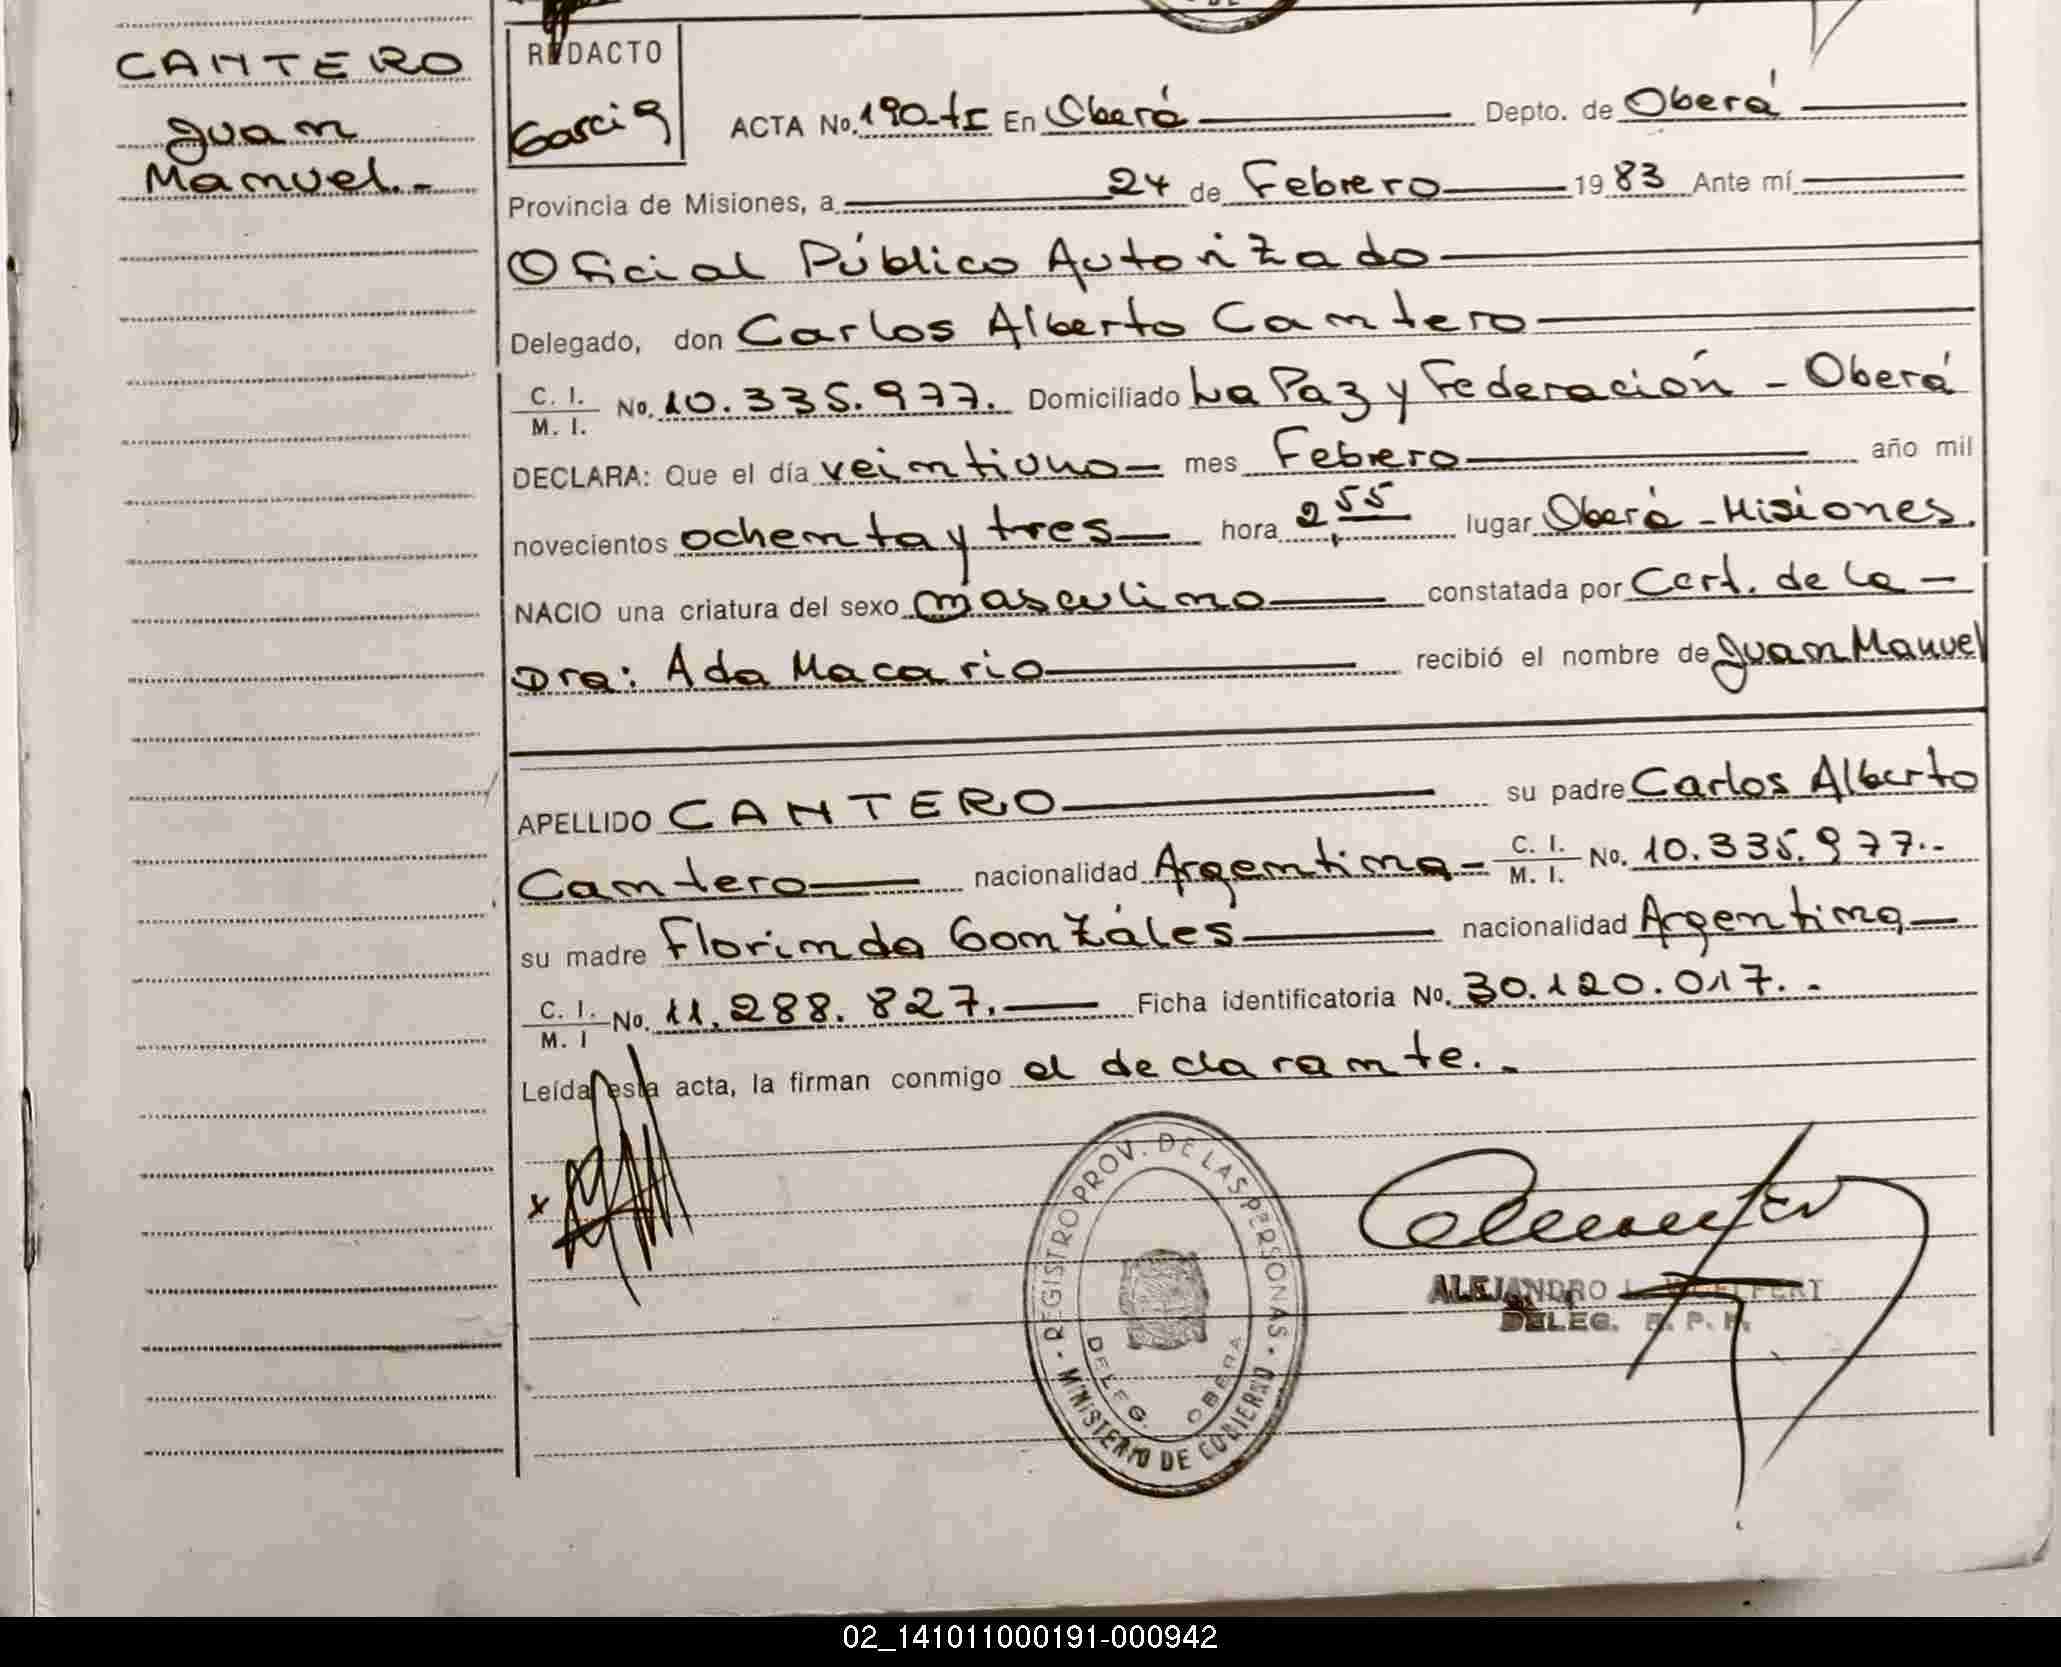 CANTERO
Juan
Manuel.-
REDACTO
Garcia
ACTA No. 190-tI En Oberá Depto. de Oberá
Provincia de Misiones, a 24 de Febrero 1983 Ante mí
Oficial Público Autorizado
Delegado, don Carlos Alberto Cantero
C. I. / M. I. No. 10.335.977. Domiciliado La Paz y Federación - Oberá
DECLARA: Que el día veintiuno mes Febrero año mil
novecientos ochenta y tres hora 2 55 lugar Oberá - Misiones.
NACIO una criatura del sexo masculino constatada por Cert. de la
Dra: Ada Macario recibió el nombre de Juan Manuel
APELLIDO CANTERO su padre Carlos Alberto
Cantero nacionalidad Argentina - C. I. / M. I. No. 10.335.977.-
su madre Florinda Gonzáles nacionalidad Argentina
C. I. / M. I No. 11.288.827. Ficha identificatoria No. 30.120.017.-
Leída esta acta, la firman conmigo el declarante.-
REGISTRO PROV. DE LAS PERSONAS
DELEG. OBERA
MINISTERIO DE GOBIERNO
ALEJANDRO
DELEG. R. P. P.
02_141011000191-000942